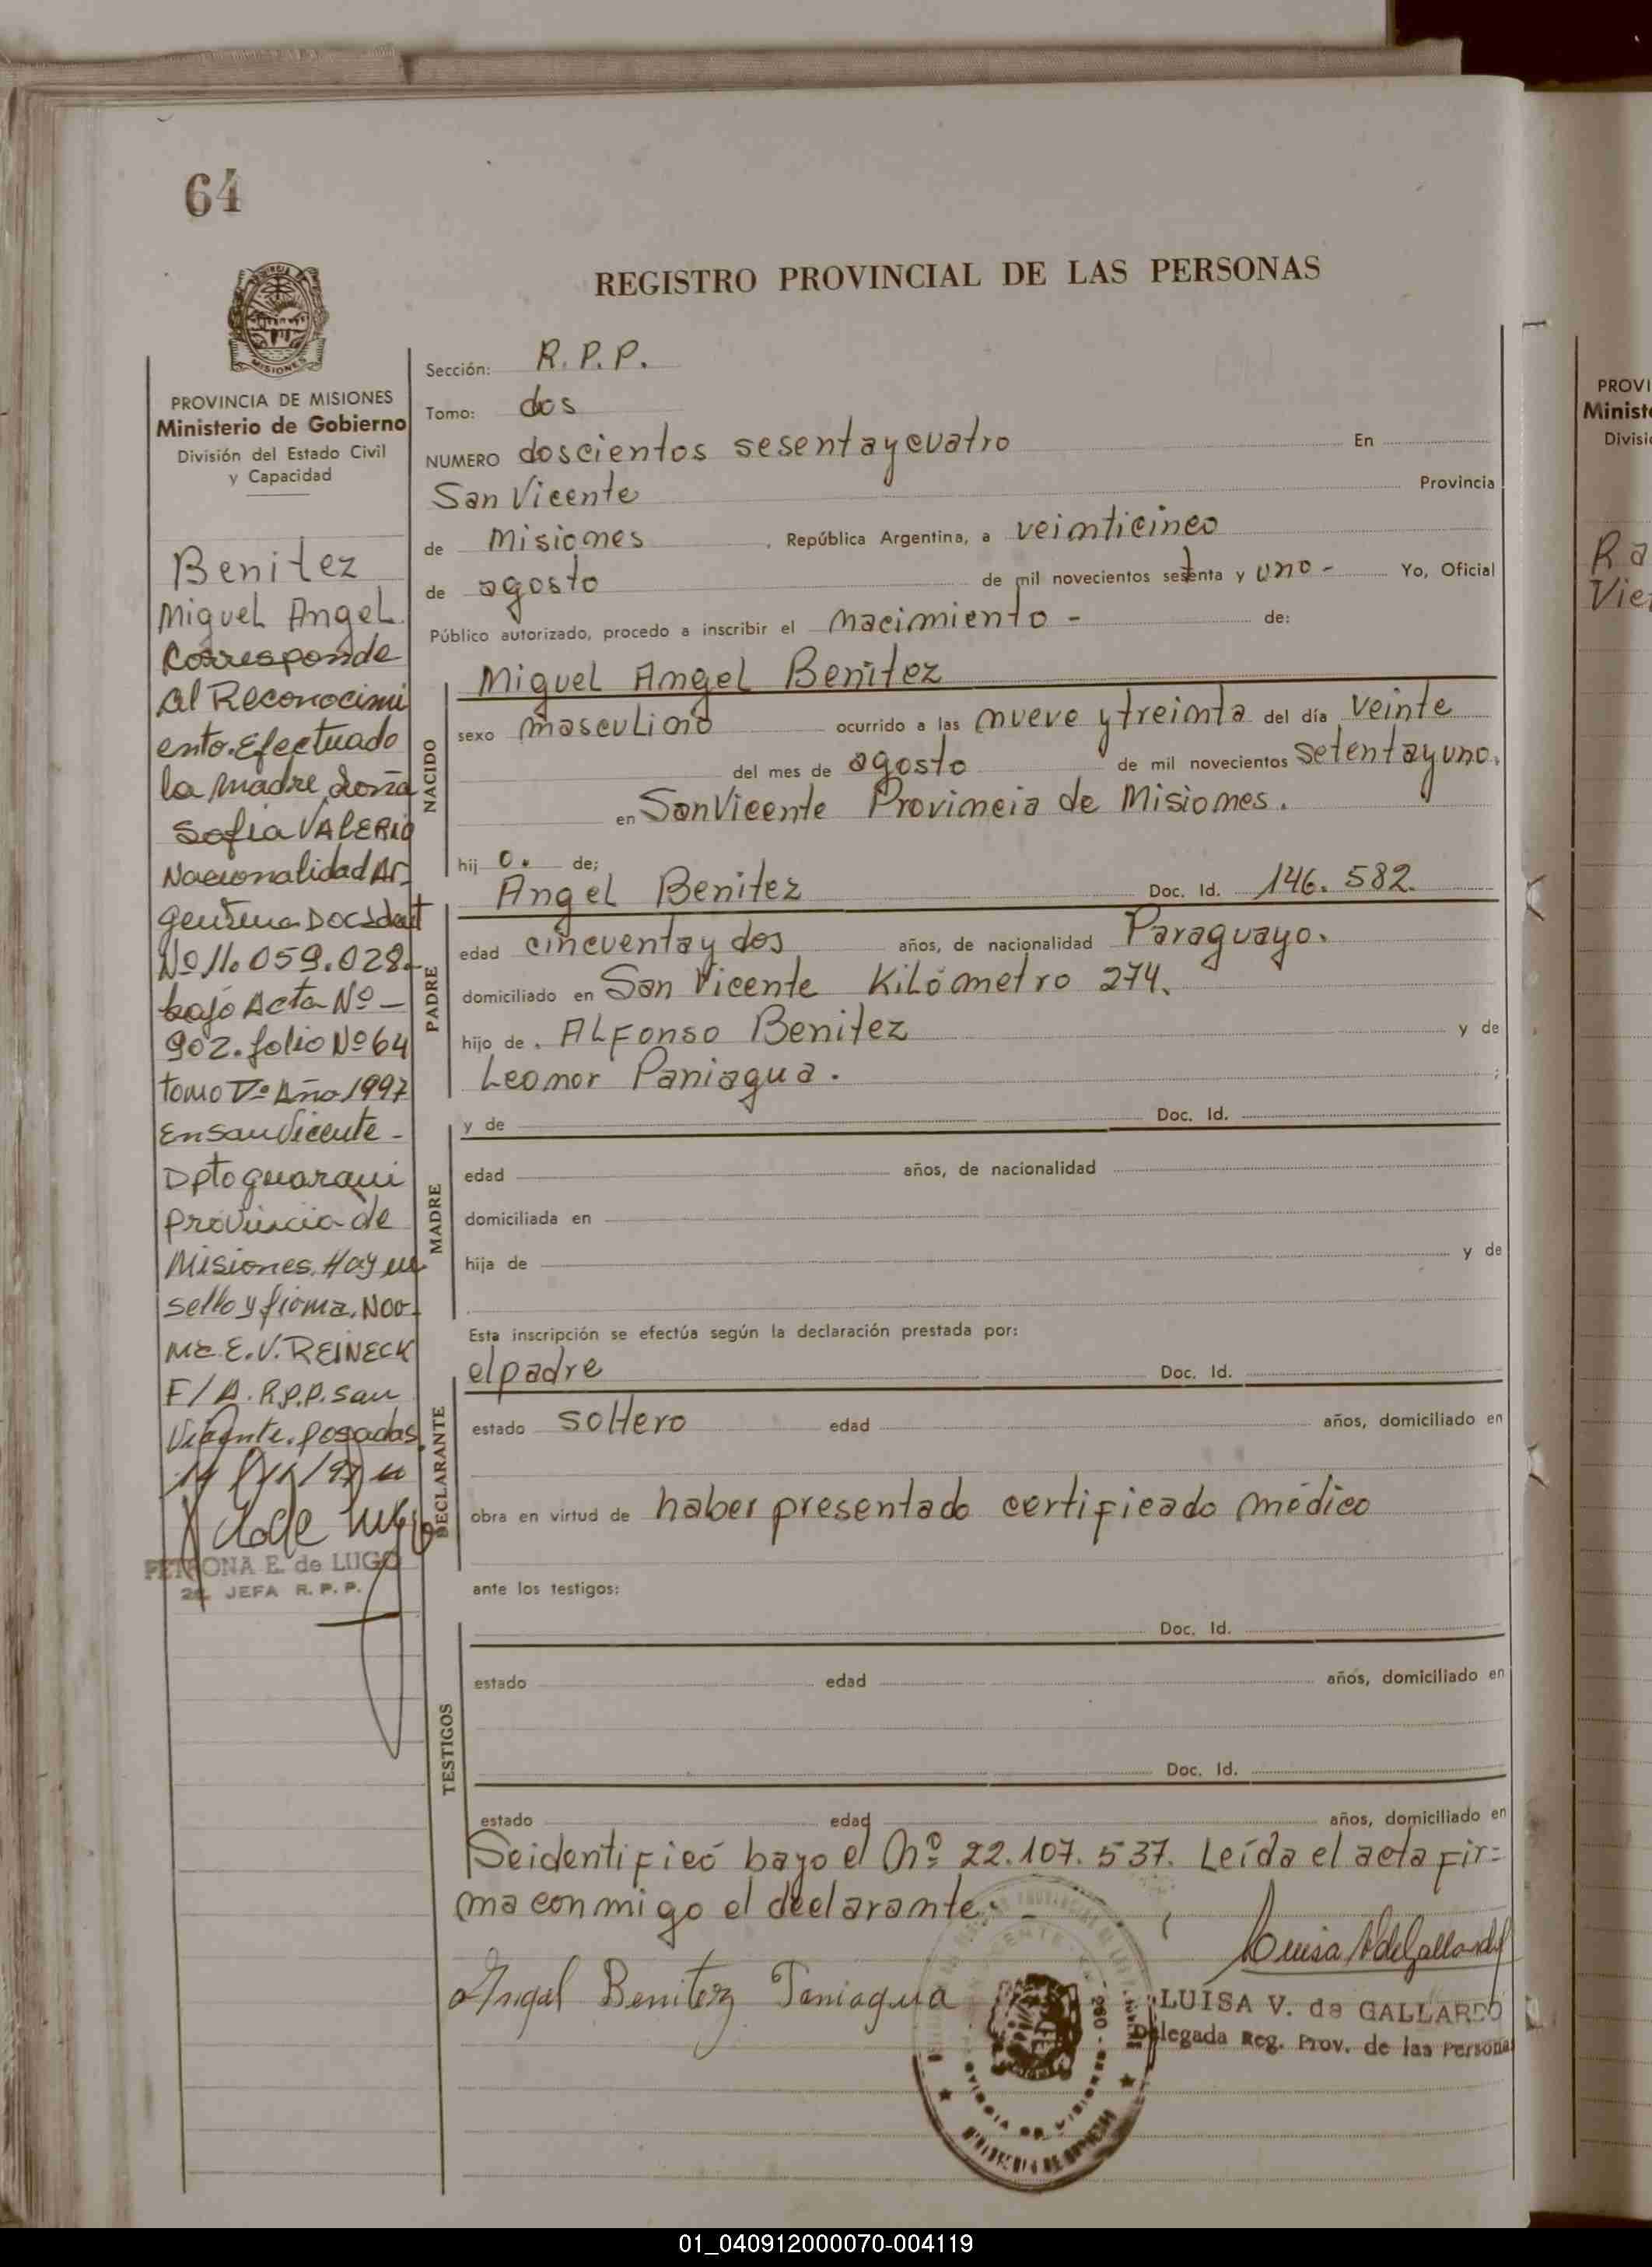 64
REGISTRO PROVINCIAL DE LAS PERSONAS
MISIONES
PROVINCIA DE MISIONES
Ministerio de Gobierno
División del Estado Civil
y Capacidad
Benitez
Miguel Angel
Corresponde
al Reconocimi
ento. Efectuado
la madre doña
Sofia VALERIO
Nacionalidad Ar-
gentina Doc Ident
Nº 11.059.028.-
bajo Acta Nº-
902. folio Nº 64
tomo Vº Año 1997
En San Vicente-
Dpto guarani
Provincia de
Misiones. Hay un
sello y firma. Nor-
ma E. V. REINECK
F/A. R.P.P. San
Vicente. Posadas
PETRONA E. de LUGO
JEFA R. P. P.
Sección: R. P. P.
Tomo: dos
NUMERO doscientos sesenta y cuatro En
San Vicente Provincia
de Misiones, República Argentina, a veinticinco
de agosto de mil novecientos setenta y uno - Yo, Oficial
Público autorizado, procedo a inscribir el nacimiento - de:
NACIDO
Miguel Angel Benitez
sexo masculino ocurrido a las nueve y treinta del día veinte
del mes de agosto de mil novecientos setenta y uno.
en San Vicente Provincia de Misiones.
hij o. de;
PADRE
Angel Benitez Doc. Id. 146.582.
edad cincuenta y dos años, de nacionalidad Paraguayo.
domiciliado en San Vicente Kilómetro 274.
hijo de. Alfonso Benitez y de
Leonor Paniagua. ;
MADRE
y de Doc. Id.
edad años, de nacionalidad
domiciliada en
hija de y de
Esta inscripción se efectúa según la declaración prestada por:
DECLARANTE
el padre Doc. Id.
estado soltero edad años, domiciliado en
obra en virtud de haber presentado certificado médico
ante los testigos:
TESTIGOS
Doc. Id.
estado edad años, domiciliado en
Doc. Id.
estado edad años, domiciliado en
Se identificó bayo el Nº 22.107.537. Leída el acta fir=
ma conmigo el declarante. -
Angel Benitez Paniagua
LUISA V. de GALLARDO
Delegada Reg. Prov. de las Personas
PROVI
Ministe
Divisi
Ra
Vie
01_040912000070-004119